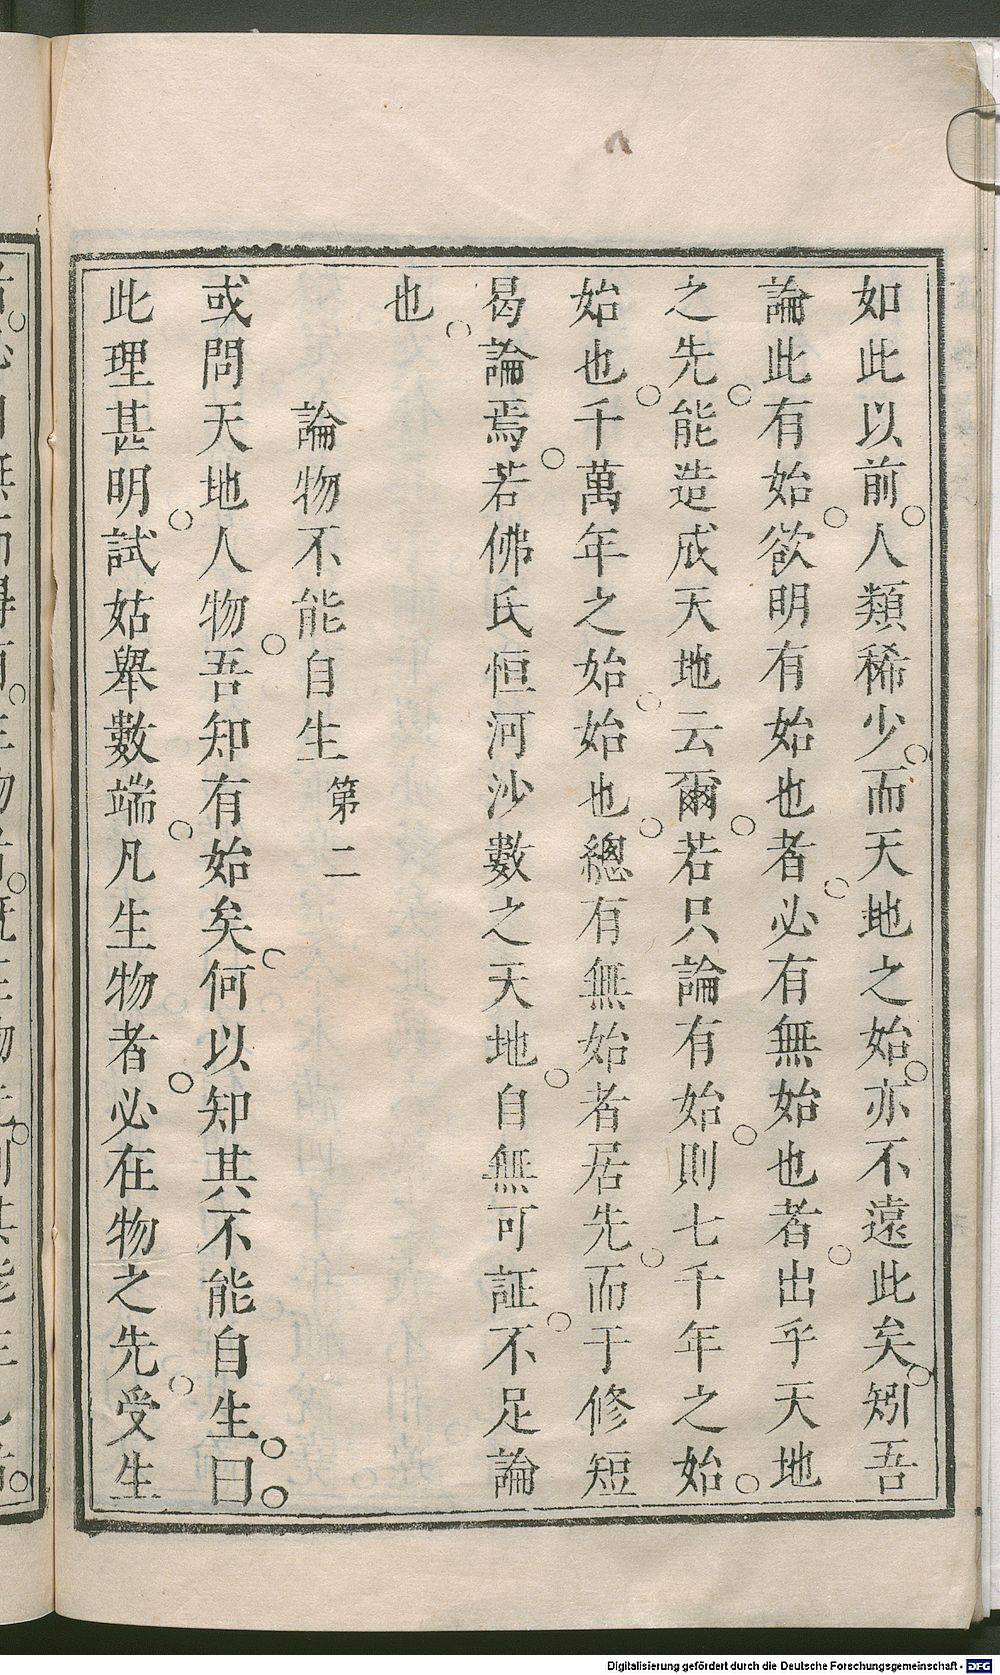 如此以前。人類稀少。而天地之始。亦不遠此矣。矧吾
論此有始。欲明有始也者。必有無始也者。出乎天地
之先。能造成天地云爾。若只論有始。則七千年之始。
始也。千萬年之始。始也。總有無始者居先。而于修短
曷論焉。若佛氏恒河沙數之天地。自無可証。不足論
也。
論物不能自生 第二
或問天地人物。吾知有始矣。何以知其不能自生。曰。
此理甚明。試姑舉數端。凡生物者。必在物之先。受生
Digitalisierung gefördert durch die Deutsche Forschungsgemeinschaft - DFG